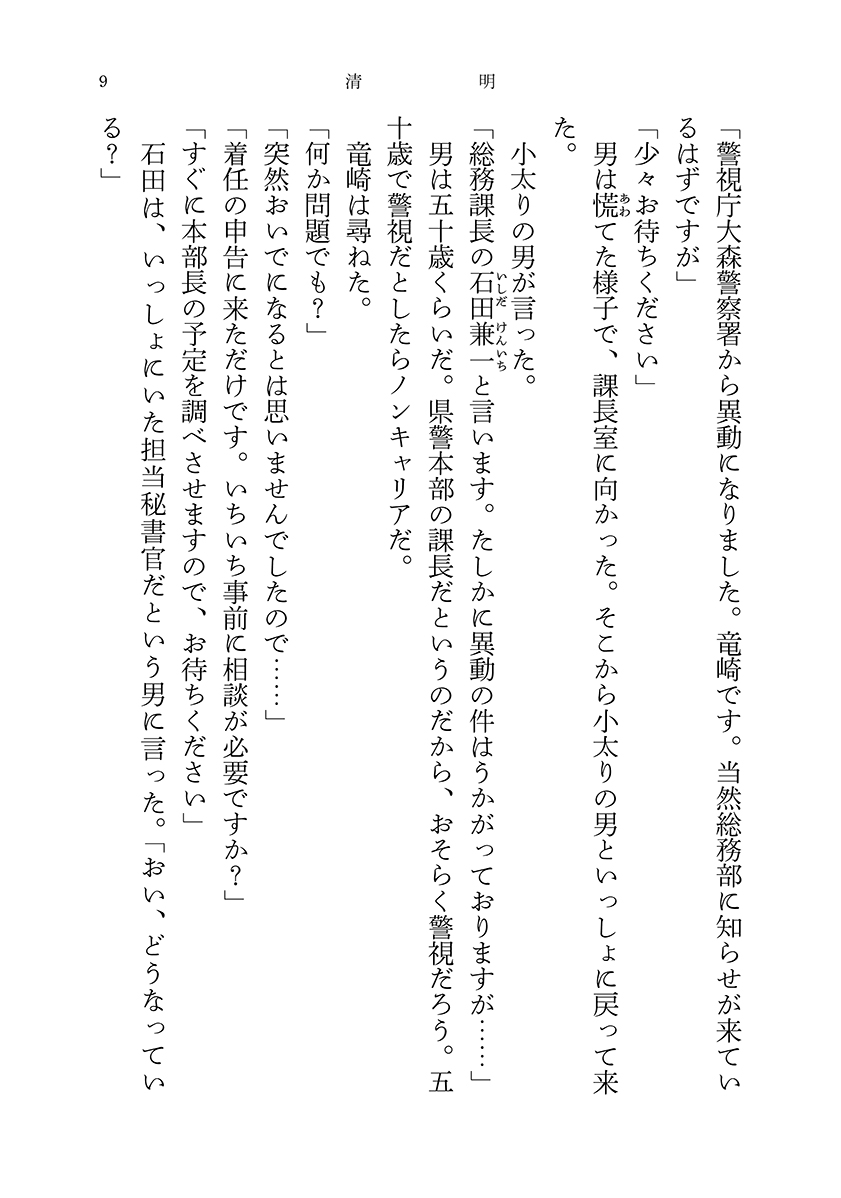 9
清明
「警視庁大森警察署から異動になりました。竜崎です。当然総務部に知らせが来てい
るはずですが」
「少々お待ちください」
男は慌てた様子で、課長室に向かった。そこから小太りの男といっしょに戻って来
あわ
た。
小太りの男が言った。
「総務課長の石田兼一と言います。たしかに異動の件はうかがっておりますが……」
いしだ けんいち
男は五十歳くらいだ。県警本部の課長だというのだから、おそらく警視だろう。五
十歳で警視だとしたらノンキャリアだ。
竜崎は尋ねた。
「何か問題でも？」
「突然おいでになるとは思いませんでしたので……」
「着任の申告に来ただけです。いちいち事前に相談が必要ですか？」
「すぐに本部長の予定を調べさせますので、お待ちください」
石田は、いっしょにいた担当秘書官だという男に言った。「おい、どうなってい
る？」